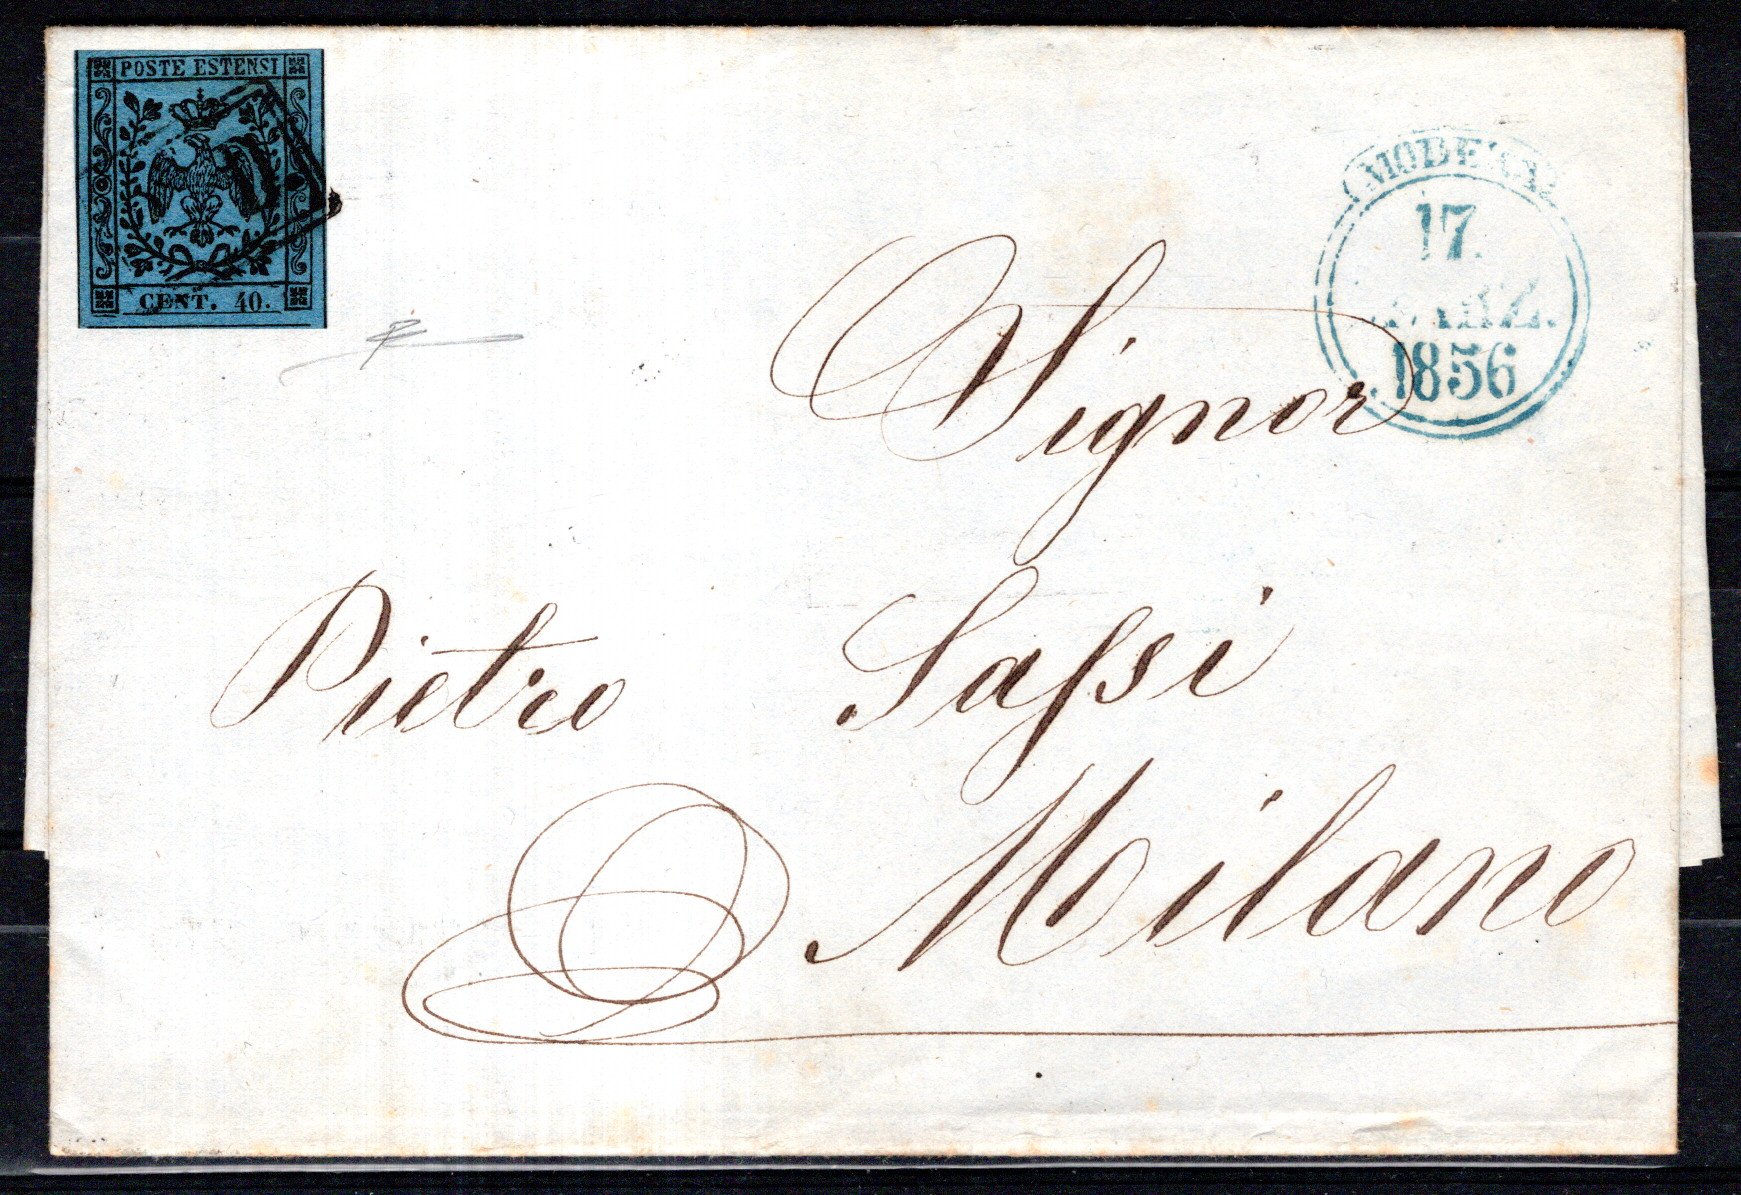 POSTE ESTENSI
CENT. 40.
MODENA
17.
MARZ.
1856
Signor
Pietro Sassi
Milano